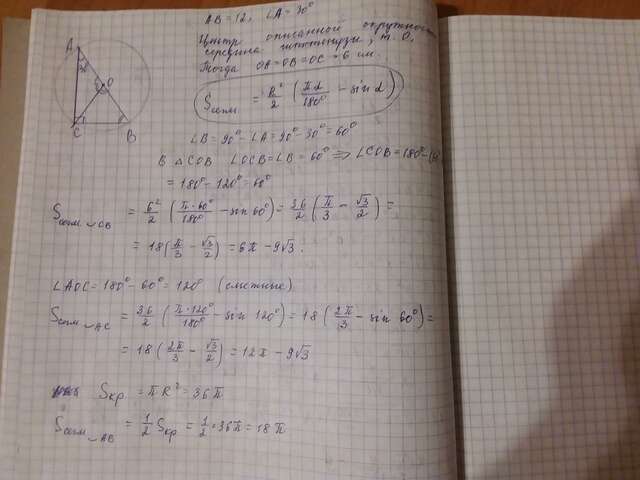 AB = 12, ∠A = 30°
Центр описанной окружности
середина гипотенузы, т. O.
Тогда OA = OB = OC = 6 см.
Sсегм = R²/2 (πα/180° − sin α)
A
O
C
B
∠B = 90° − ∠A = 90° − 30° = 60°
В △COB ∠OCB = ∠B = 60° ⇒ ∠COB = 180° −
= 180° − 120° = 60°
Sсегм.◡CB = 6²/2 (π·60°/180° − sin 60°) = 36/2 (π/3 − √3/2) =
= 18 (π/3 − √3/2) = 6π − 9√3.
∠AOC = 180° − 60° = 120° (смежные)
Sсегм.◡AC = 36/2 (π·120°/180° − sin 120°) = 18 (2π/3 − sin 60°) =
= 18 (2π/3 − √3/2) = 12π − 9√3
Sкр = πR² = 36π
Sсегм.◡AB = 1/2 Sкр = 1/2 · 36π = 18π